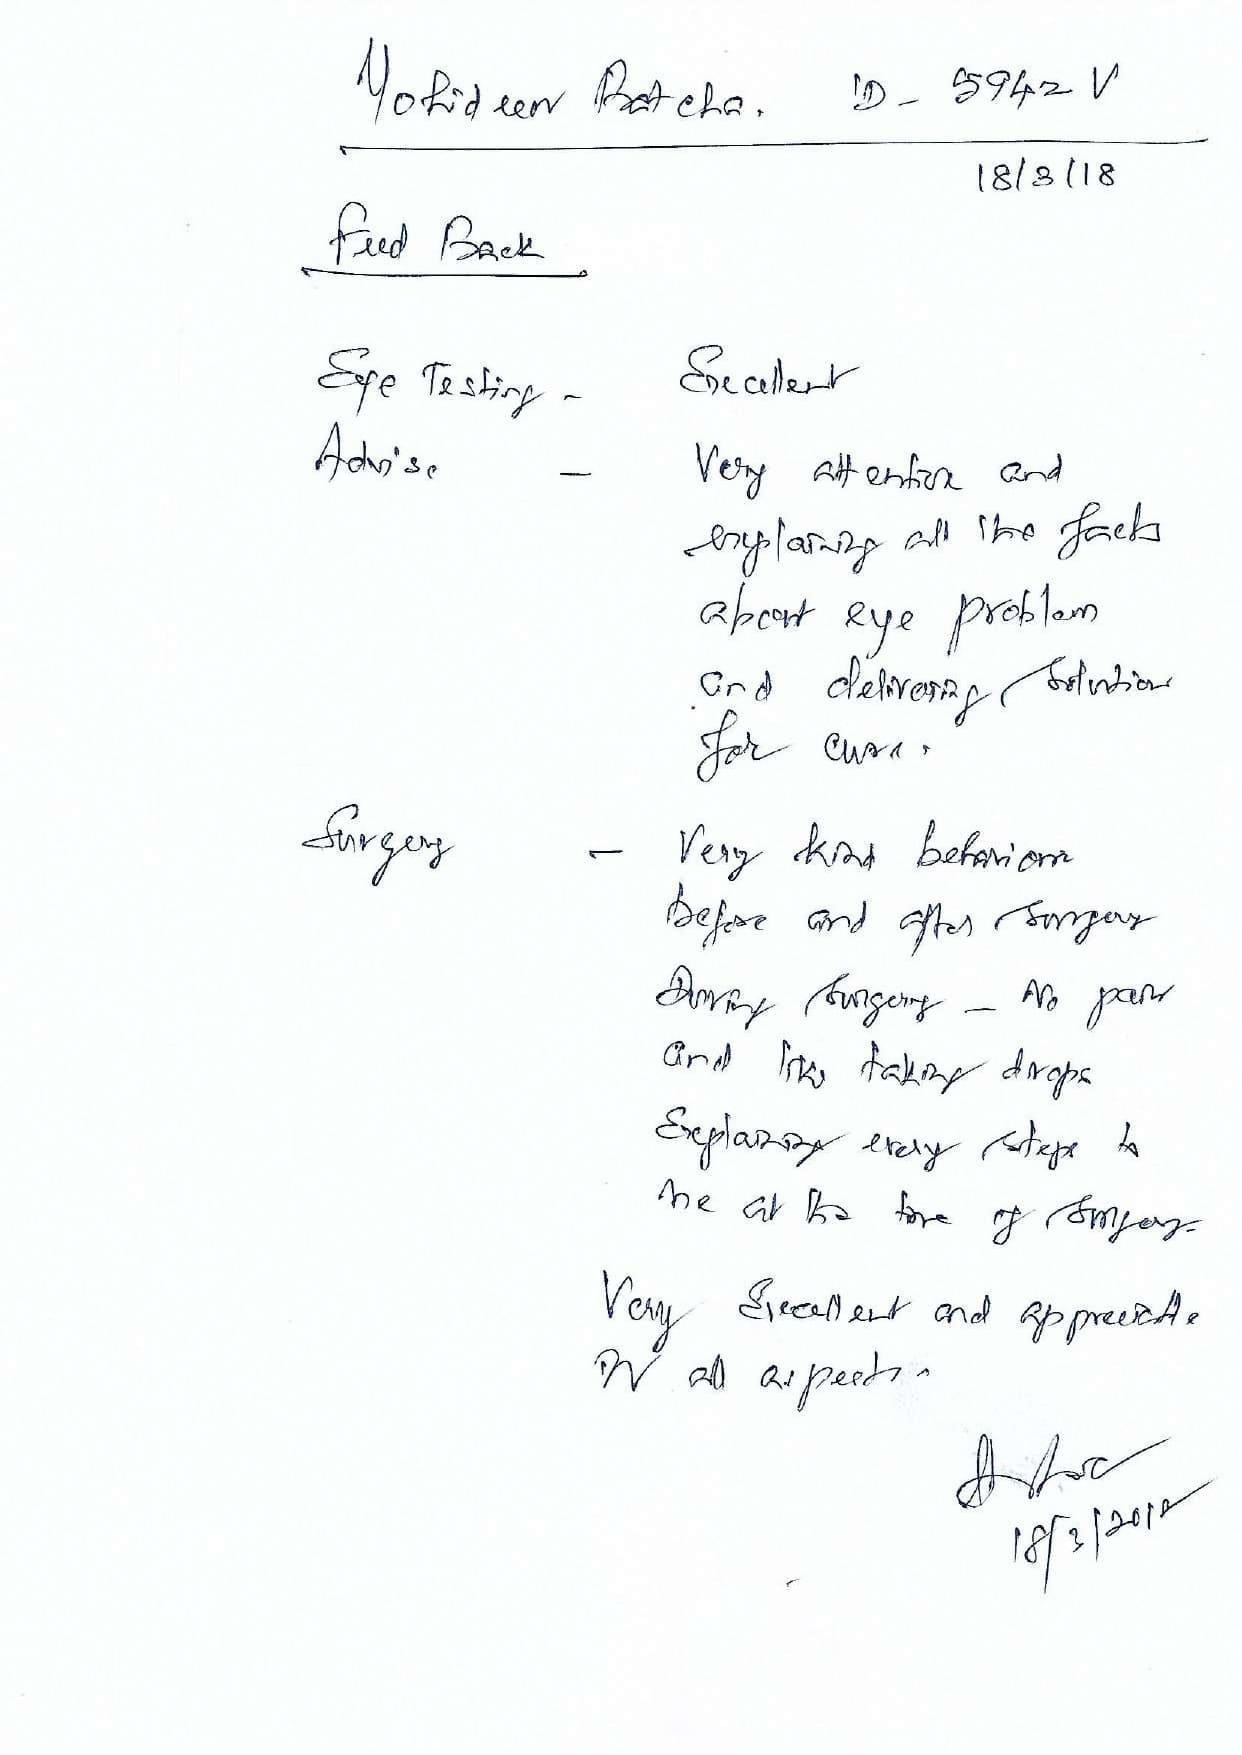 Mohideen Batcha. ID - 5942 V
18/3/18
Feed Back
Eye Testing - Excellent
Advise - Very attention and
explaining all the facts
about eye problem
and delivering solution
for cure.
Surgery - Very kind behaviour
before and after surgery
During surgery - No pain
and like taking drops
Explaining every steps to
me at the time of surgery.
Very Excellent and appreciable
in all aspects.
18/3/2018